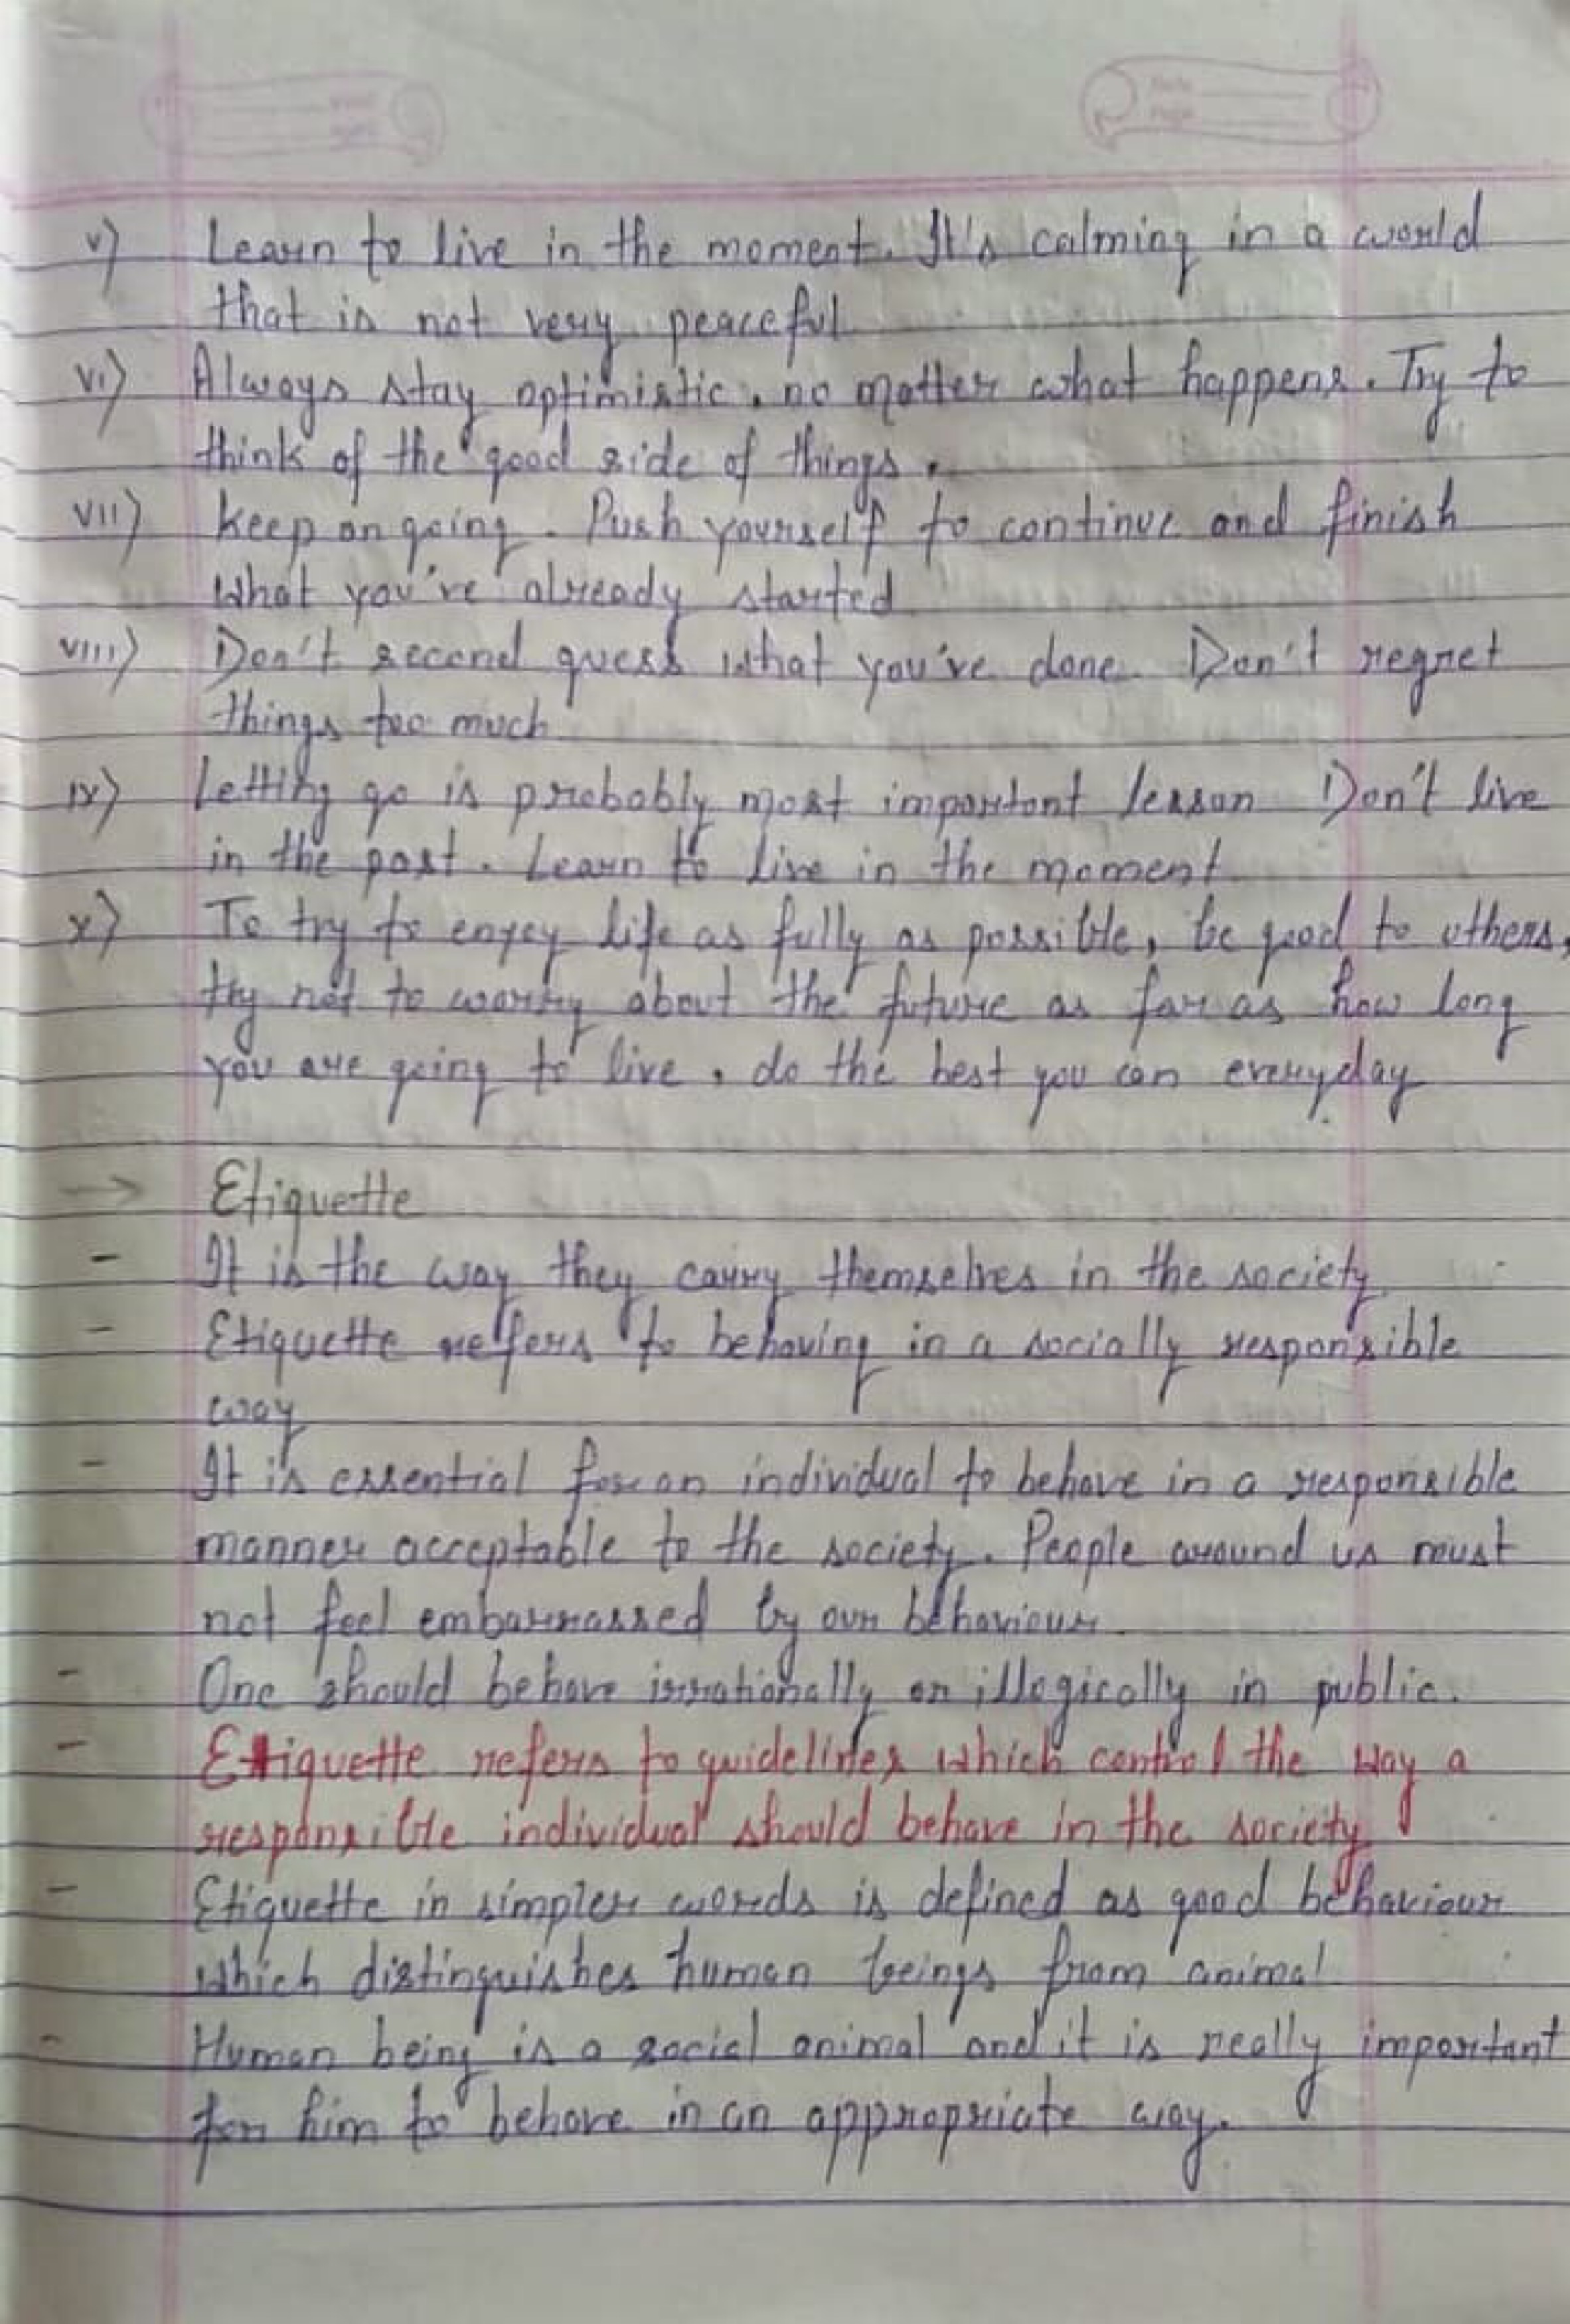 v) Learn to live in the moment. It's calming in a world
that is not very peaceful
vi) Always stay optimistic, no matter what happens. Try to
think of the good side of things.
vii) Keep on going. Push yourself to continue and finish
what you've already started
viii) Don't second guess what you've done. Don't regret
things too much
ix) Letting go is probably most important lesson Don't live
in the past. Learn to live in the moment
x) To try to enjoy life as fully as possible, be good to others,
try not to worry about the future as far as how long
you are going to live, do the best you can everyday
→ Etiquette
- It is the way they carry themselves in the society
- Etiquette refers to behaving in a socially responsible
way
- It is essential for an individual to behave in a responsible
manner acceptable to the society. People around us must
not feel embarrassed by our behaviour.
- One should behave irrationally or illogically in public.
- Etiquette refers to guidelines which control the way a
responsible individual should behave in the society
- Etiquette in simpler words is defined as good behaviour
which distinguishes human beings from animal
- Human being is a social animal and it is really important
for him to behave in an appropriate way.